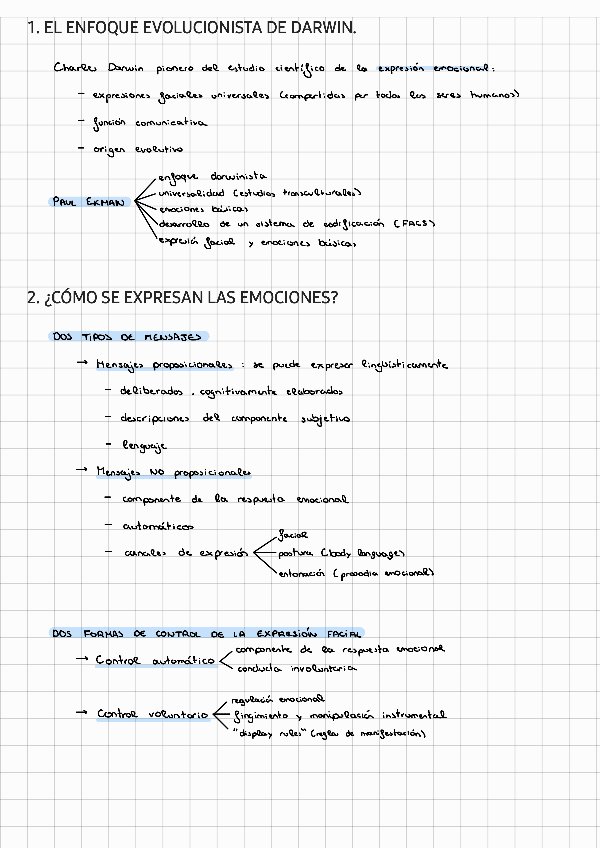 1. EL ENFOQUE EVOLUCIONISTA DE DARWIN.
Charles Darwin pionero del estudio científico de la expresión emocional:
- expresiones faciales universales (compartidas por todos los seres humanos)
- función comunicativa
- origen evolutivo
PAUL EKMAN
enfoque darwinista
universalidad (estudios transculturales)
emociones básicas
desarrollo de un sistema de codificación (FACS)
expresión facial y emociones básicas
2. ¿CÓMO SE EXPRESAN LAS EMOCIONES?
DOS TIPOS DE MENSAJES
→ Mensajes proposicionales : se puede expresar lingüísticamente
- deliberados , cognitivamente elaborados
- descripciones del componente subjetivo
- lenguaje
→ Mensajes NO proposicionales
- componente de la respuesta emocional
- automáticos
- canales de expresión
facial
postura (body language)
entonación (prosodia emocional)
DOS FORMAS DE CONTROL DE LA EXPRESIÓN FACIAL
→ Control automático
componente de la respuesta emocional
conducta involuntaria
→ Control voluntario
regulación emocional
fingimiento y manipulación instrumental
"display rules" (reglas de manifestación)